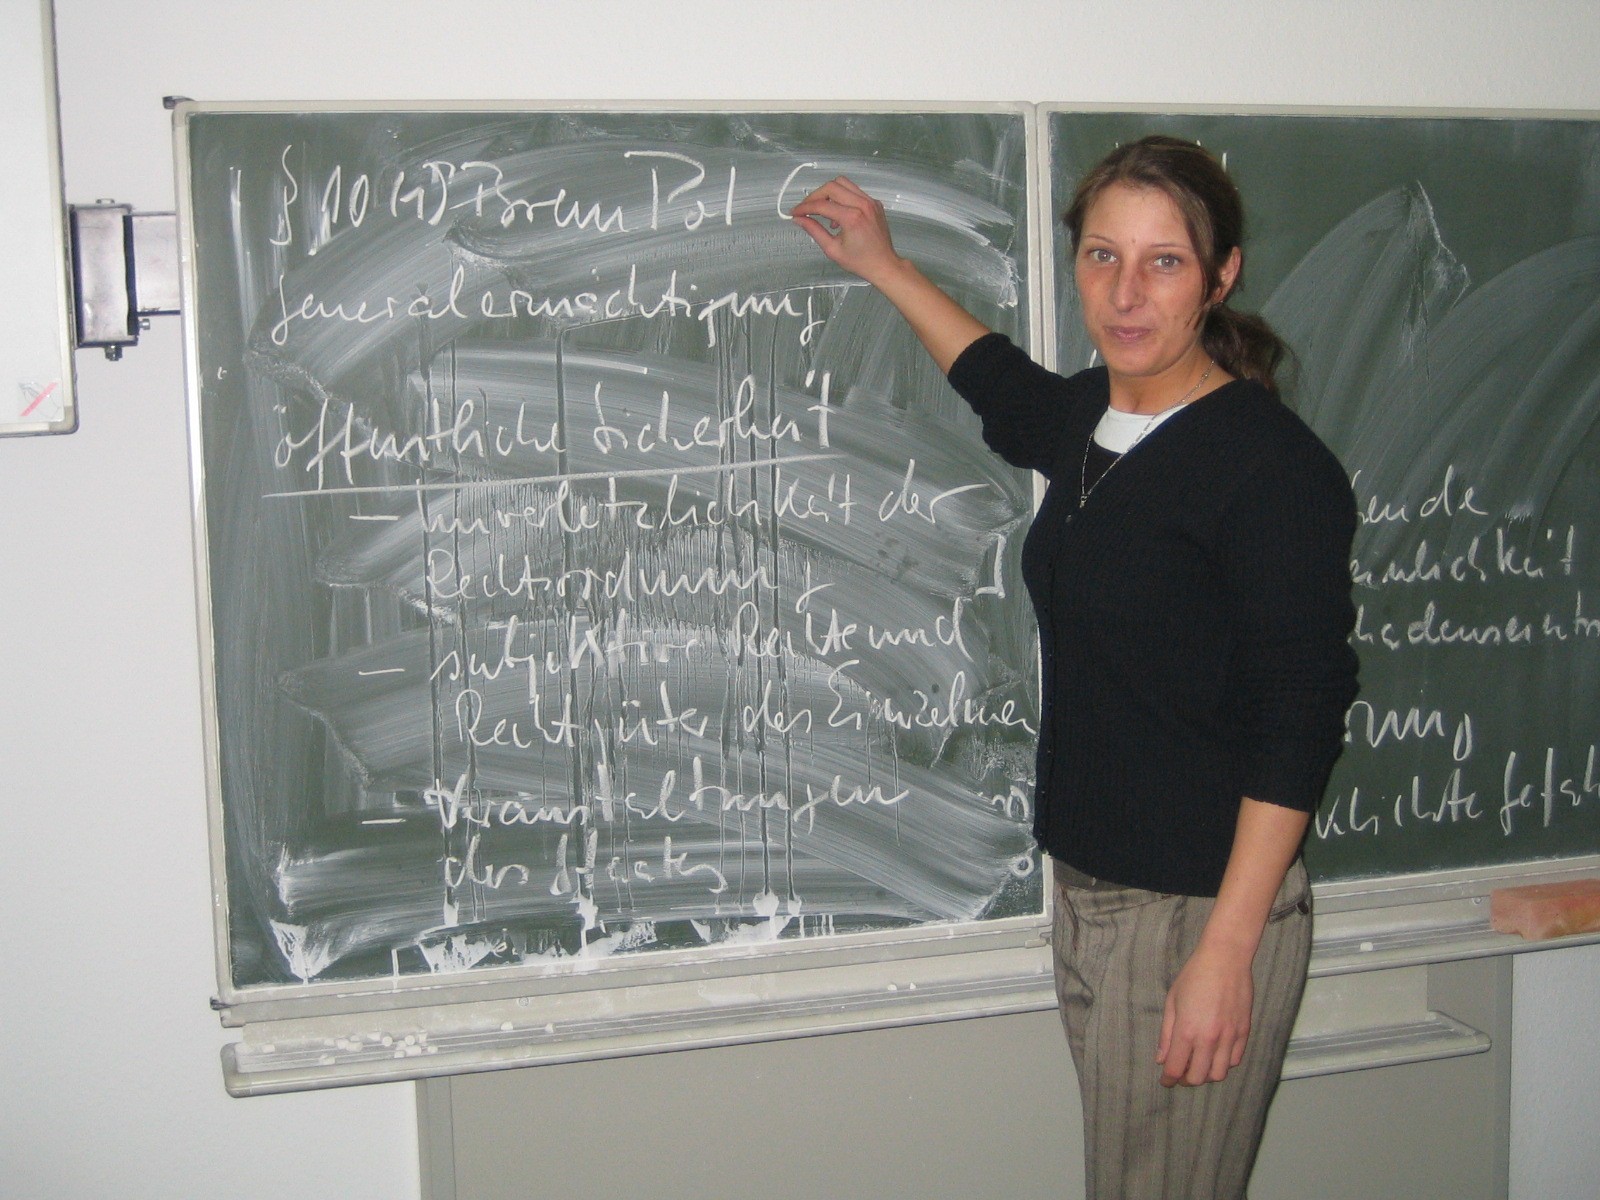 § 10 (1) Brem Pol G
Generalermächtigung
öffentliche Sicherheit
– Unverletzlichkeit der
Rechtsordnung
– subjektive Rechte und
Rechtsgüter des Einzelnen
– Veranstaltungen
des Staates
ende
einlichkeit
hadenseintr
rung
lichte Gefah